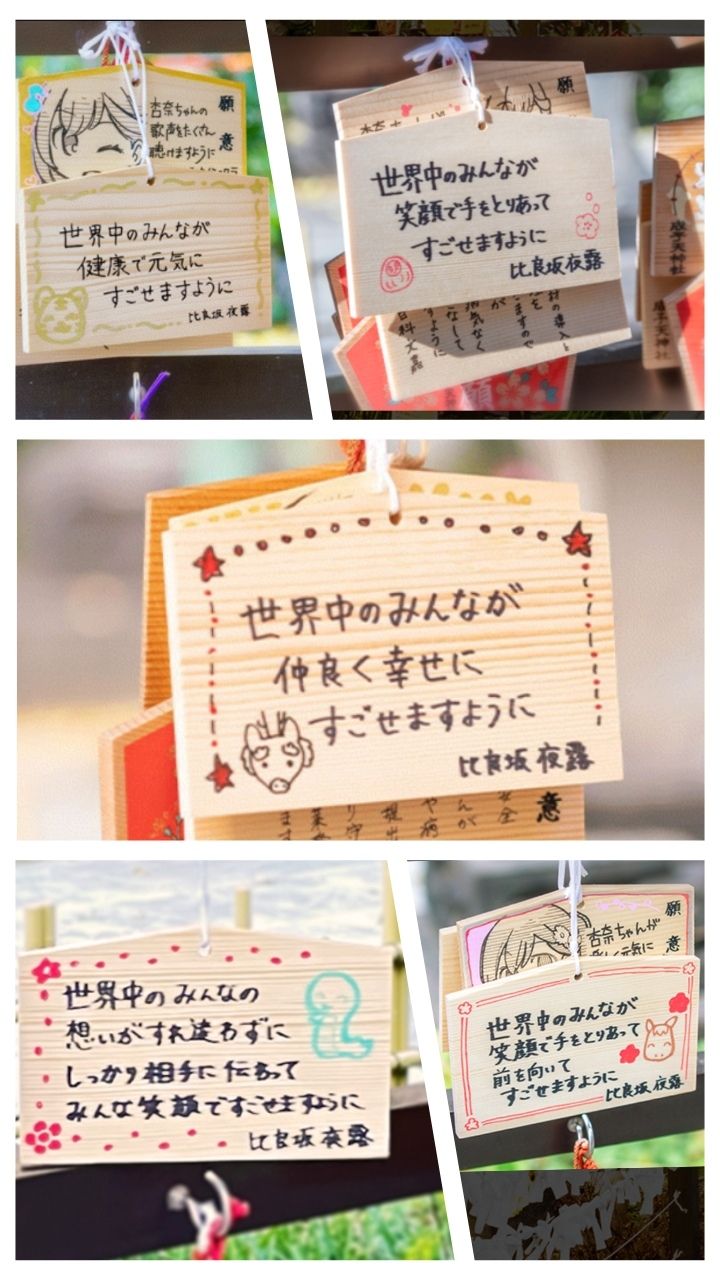 願意
杏奈ちゃんの
歌声をたくさん
聴けますように
世界中のみんなが
健康で元気に
すごせますように
比良坂夜露
願
世界中のみんなが
笑顔で手をとりあって
すごせますように
比良坂夜露
世界中のみんなが
仲良く幸せに
すごせますように
比良坂夜露
意
世界中のみんなの
想いがすれ違わずに
しっかり相手に伝わって
みんな笑顔ですごせますように
比良坂夜露
願意
杏奈ちゃんが
世界中のみんなが
笑顔で手をとりあって
前を向いて
すごせますように
比良坂夜露